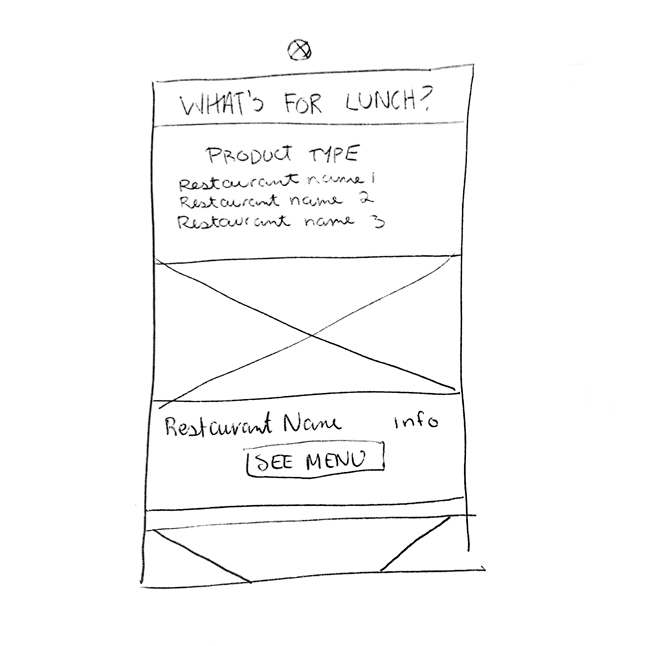 WHAT'S FOR LUNCH?
PRODUCT TYPE
Restaurant name 1
Restaurant name 2
Restaurant name 3
Restaurant Name info
SEE MENU